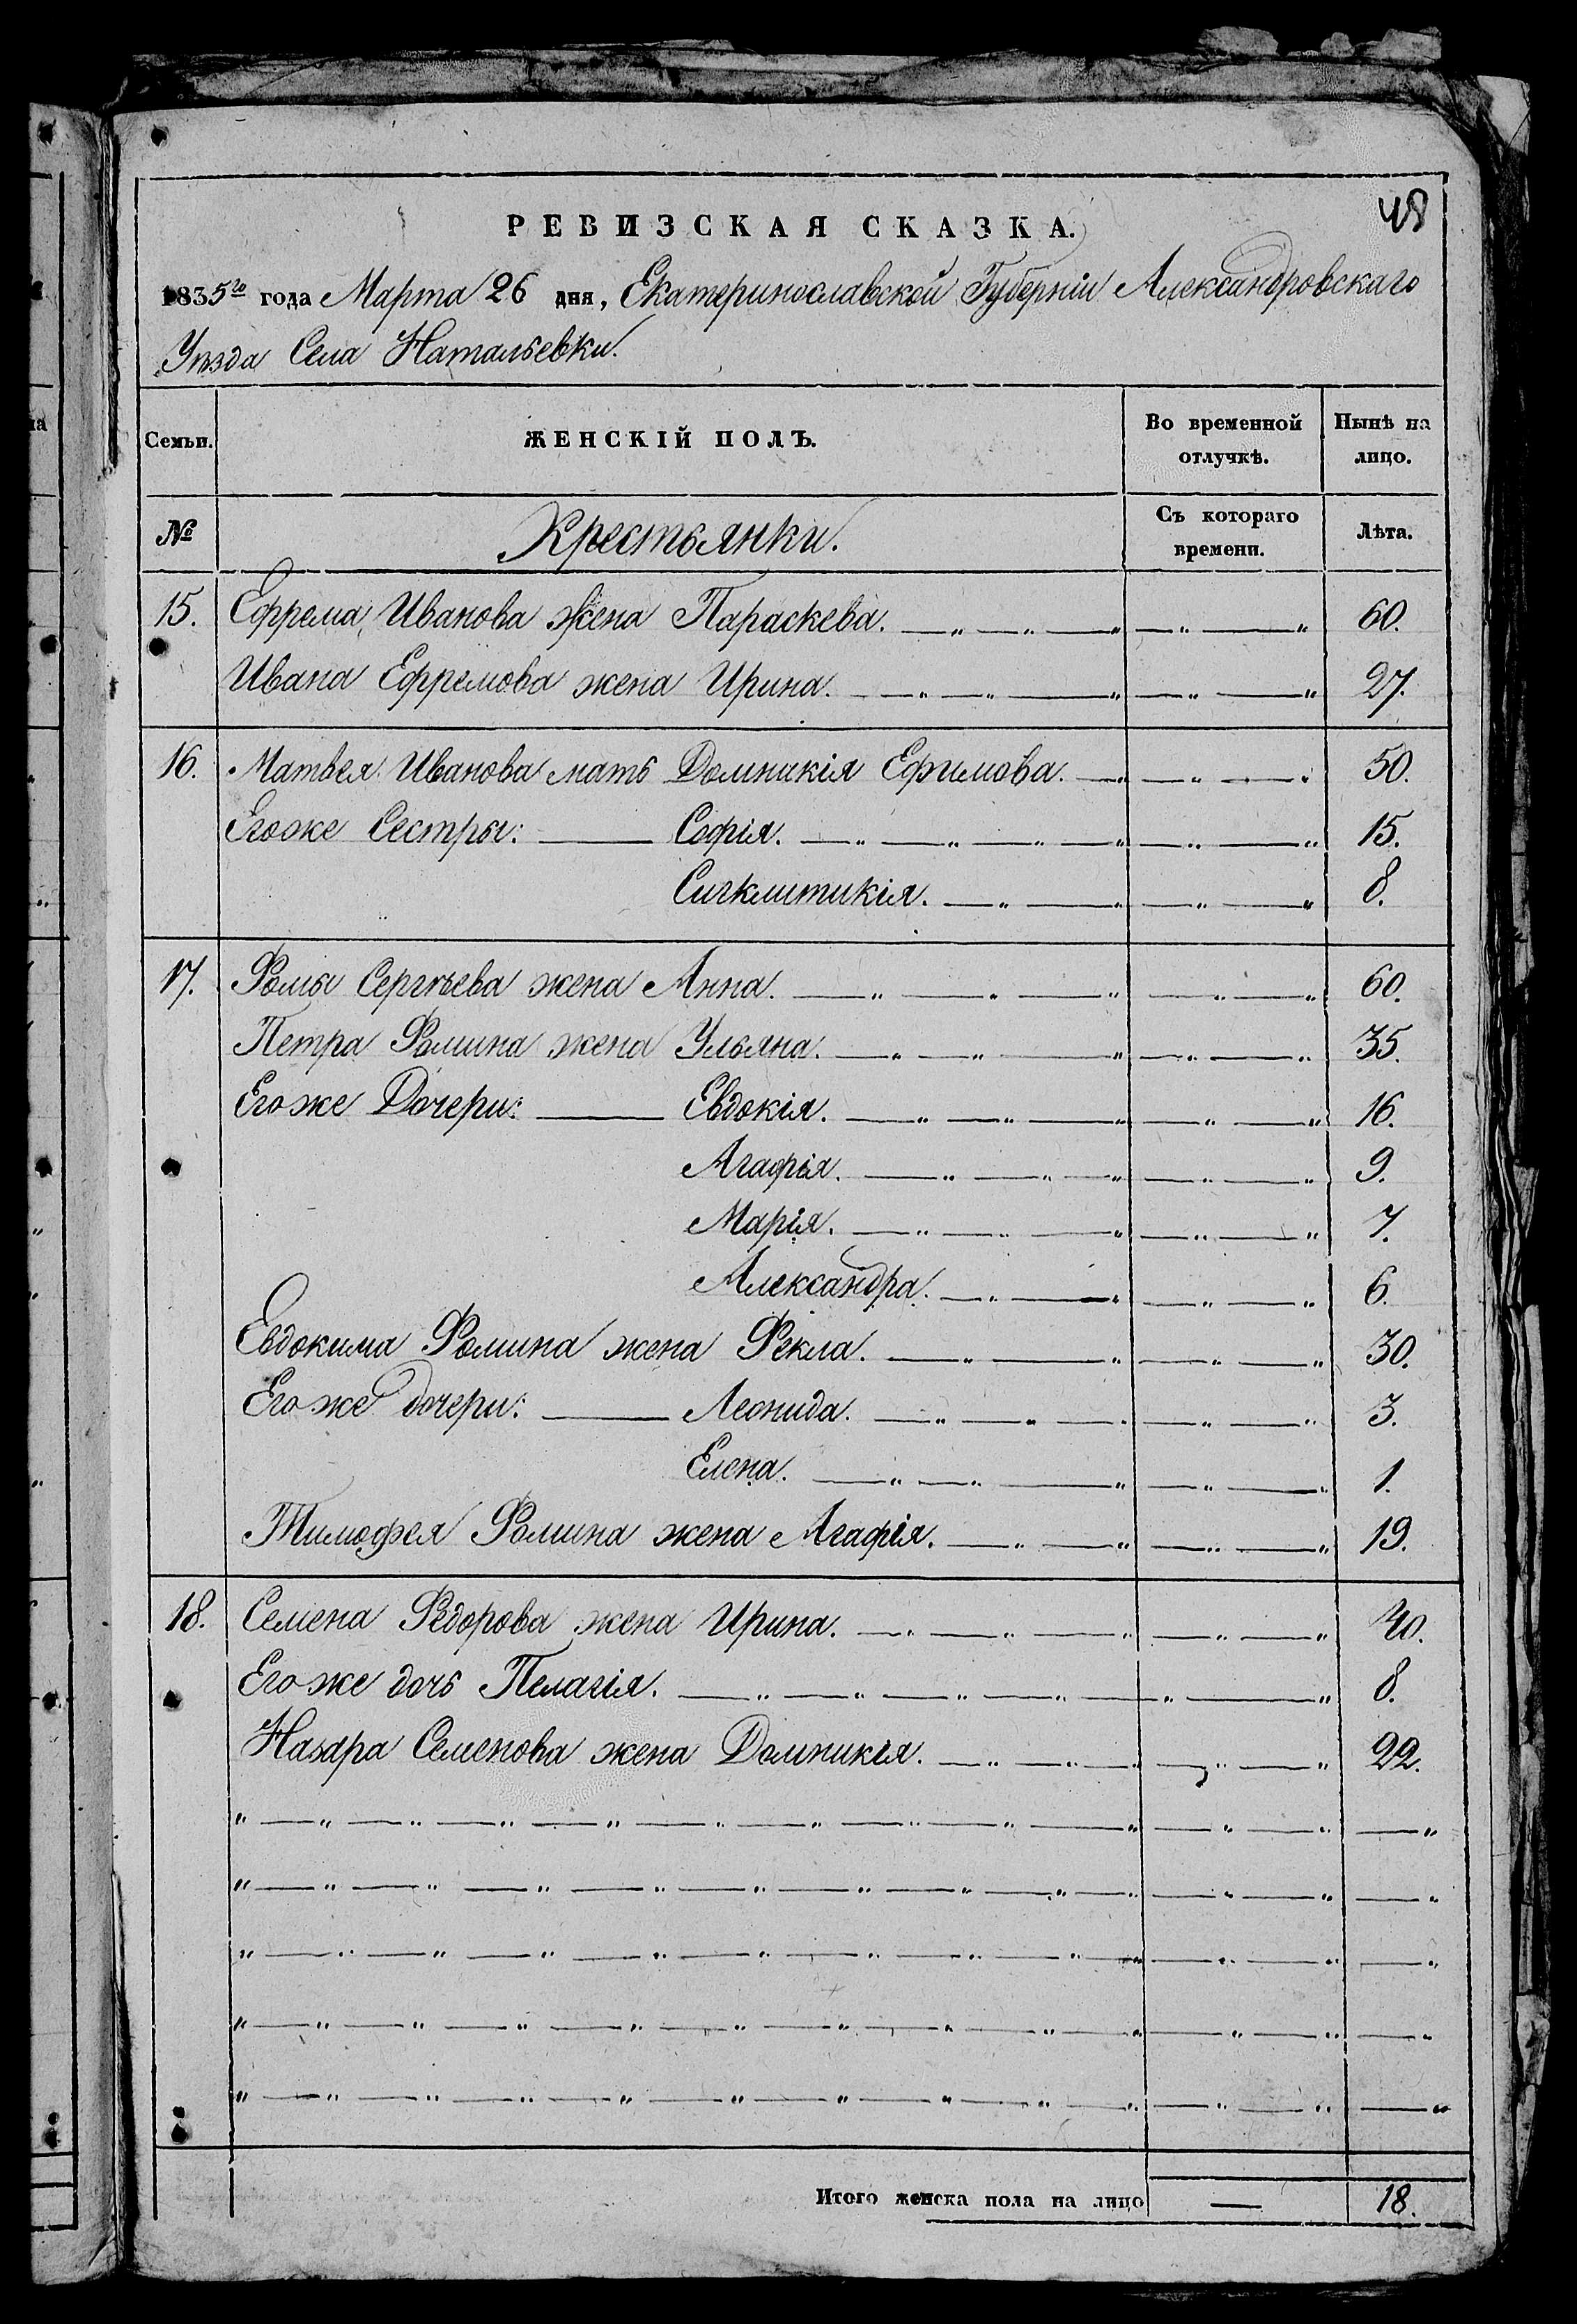 48
РЕВИЗСКАЯ СКАЗКА.
1835го года Марта 26 дня, Екатеринославской Губерніи Александровскаго
Уѣзда Села Натальевки.
Семьи. ЖЕНСКІЙ ПОЛЪ. Во временной отлучкѣ. Нынѣ на лицо.
№ Крестьянки. Съ котораго времени. Лѣта.
15. Ефрема Иванова жена Параскева. 60.
Ивана Ефремова жена Ирина. 27.
16. Матвея Иванова мать Домникія Ефимова. 50.
Егоже Сестры: Софія. 15.
Сигклитикія. 8.
17. Фомы Сергѣева жена Анна. 60.
Петра Фомина жена Ульяна. 35.
Егоже Дочери: Евдокія. 16.
Агафія. 9.
Марія. 7.
Александра. 6.
Евдокима Фомина жена Фекла. 30.
Егоже дочери: Леонида. 3.
Елена. 1.
Тимофея Фомина жена Агафія. 19.
18. Семена Федорова жена Ирина. 40.
Егоже дочь Пелагія. 8.
Назара Семенова жена Домникія. 22.
Итого женска пола на лицо — 18.